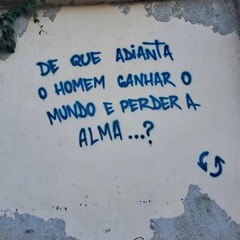 DE QUE ADIANTA
O HOMEM GANHAR O
MUNDO E PERDER A
ALMA...?